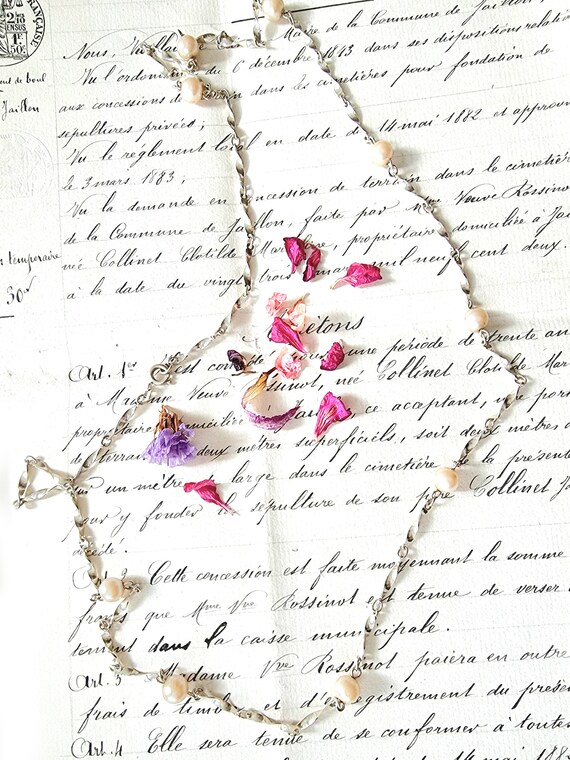 FRANÇAISE
2/10
EN SUS
1F
50c
nt de boul
Jaillon
temporaire
30
Maire de la Commune de Jaillon,
Nous,
Vu l'ordonnance du 6 décembre 1843 dans ses dispositions relatives
aux concessions de terrain dans les cimetières pour fondation de
sépultures privées;
Vu le réglement local en date du 14 mai 1882 et approuvé
le 3 mars 1883;
Vu la demande en concession de terrain dans le cimetière
de la Commune de Jaillon, faite par Mme Veuve Rossinot
née Collinet Clotilde propriétaire domiciliée à Jaillon
à la date du vingt trois mai mil neuf cent deux.
Arrêtons
Art. 1er est concédé pour une période de trente ans
à Madame Veuve Rossinot, née Collinet Clotilde
propriétaire domiciliée ce acceptant, une
de terrain deux mètres superficiels, soit deux mètres de
un mètre de large dans le cimetière
pour y fonder sépulture de son père Collinet
décédé.
Cette concession est faite moyennant la somme
francs que Mme Vve Rossinot est tenue de verser
dans la caisse municipale.
Art. 3 Madame Vve Rossinot paiera en outre
frais de timbre et d'enregistrement du présent
Art. 4 Elle sera tenue de se conformer à toutes
14 mai 188